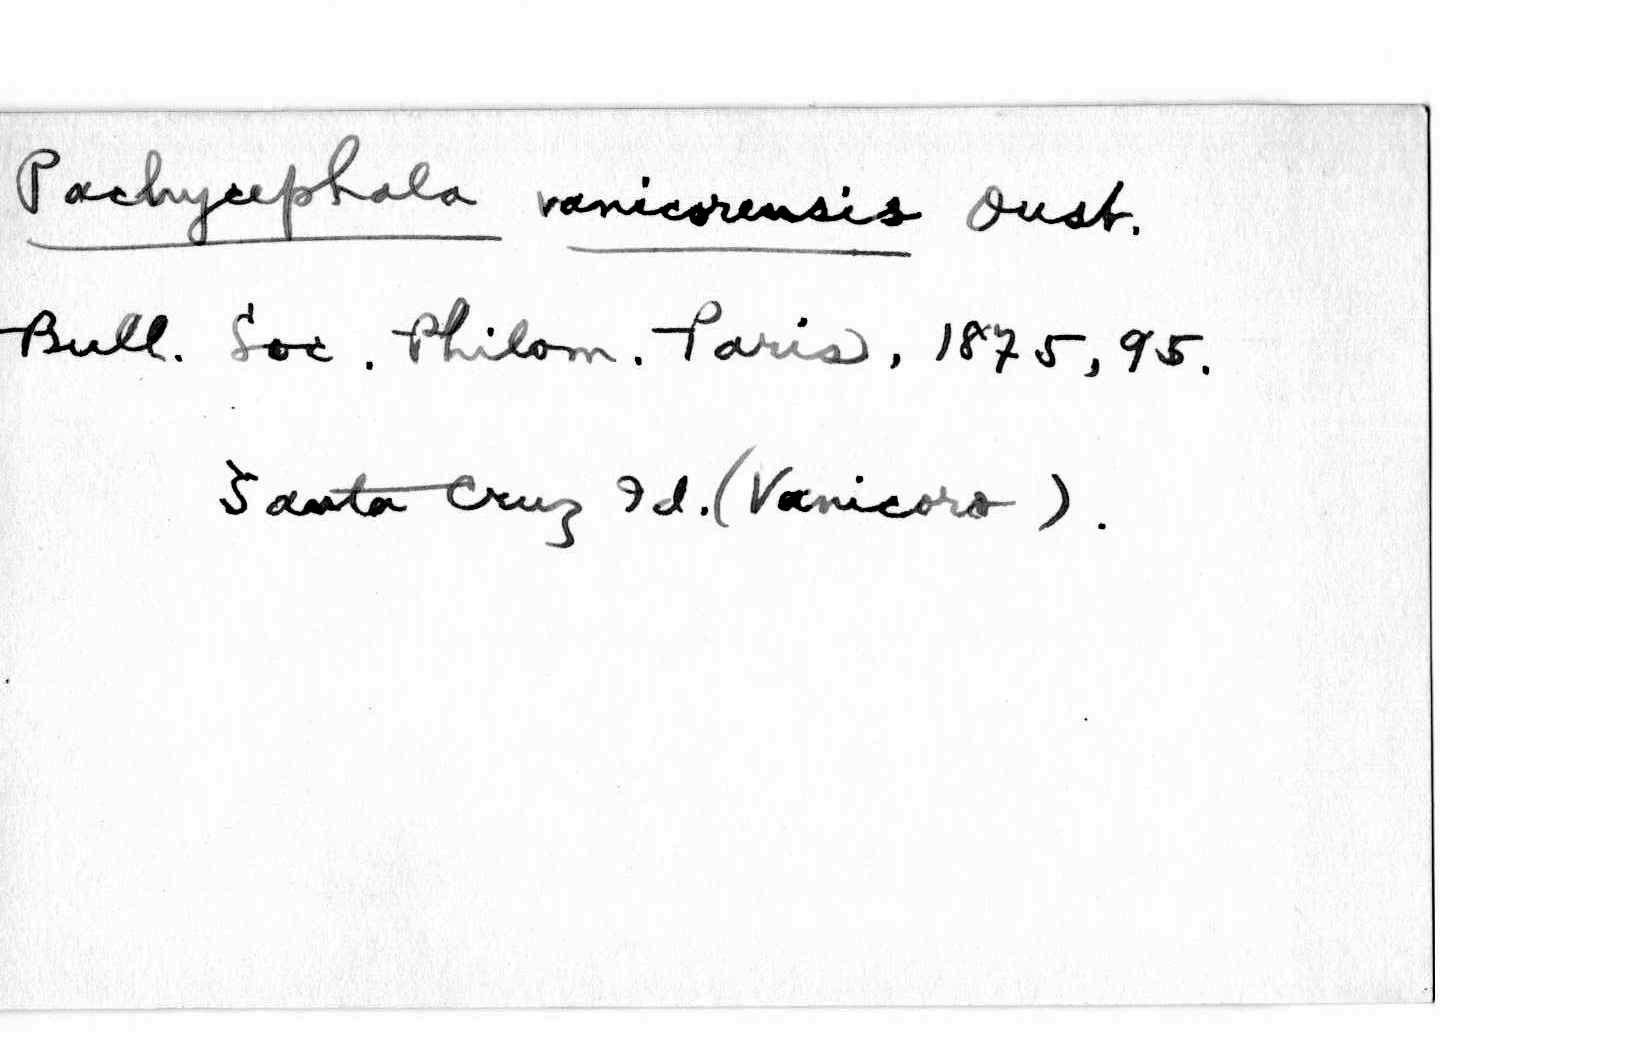 Pachycephala vanicorensis Oust.
Bull. Soc. Philom. Paris, 1875, 95.
Santa Cruz Id. (Vanicoro).